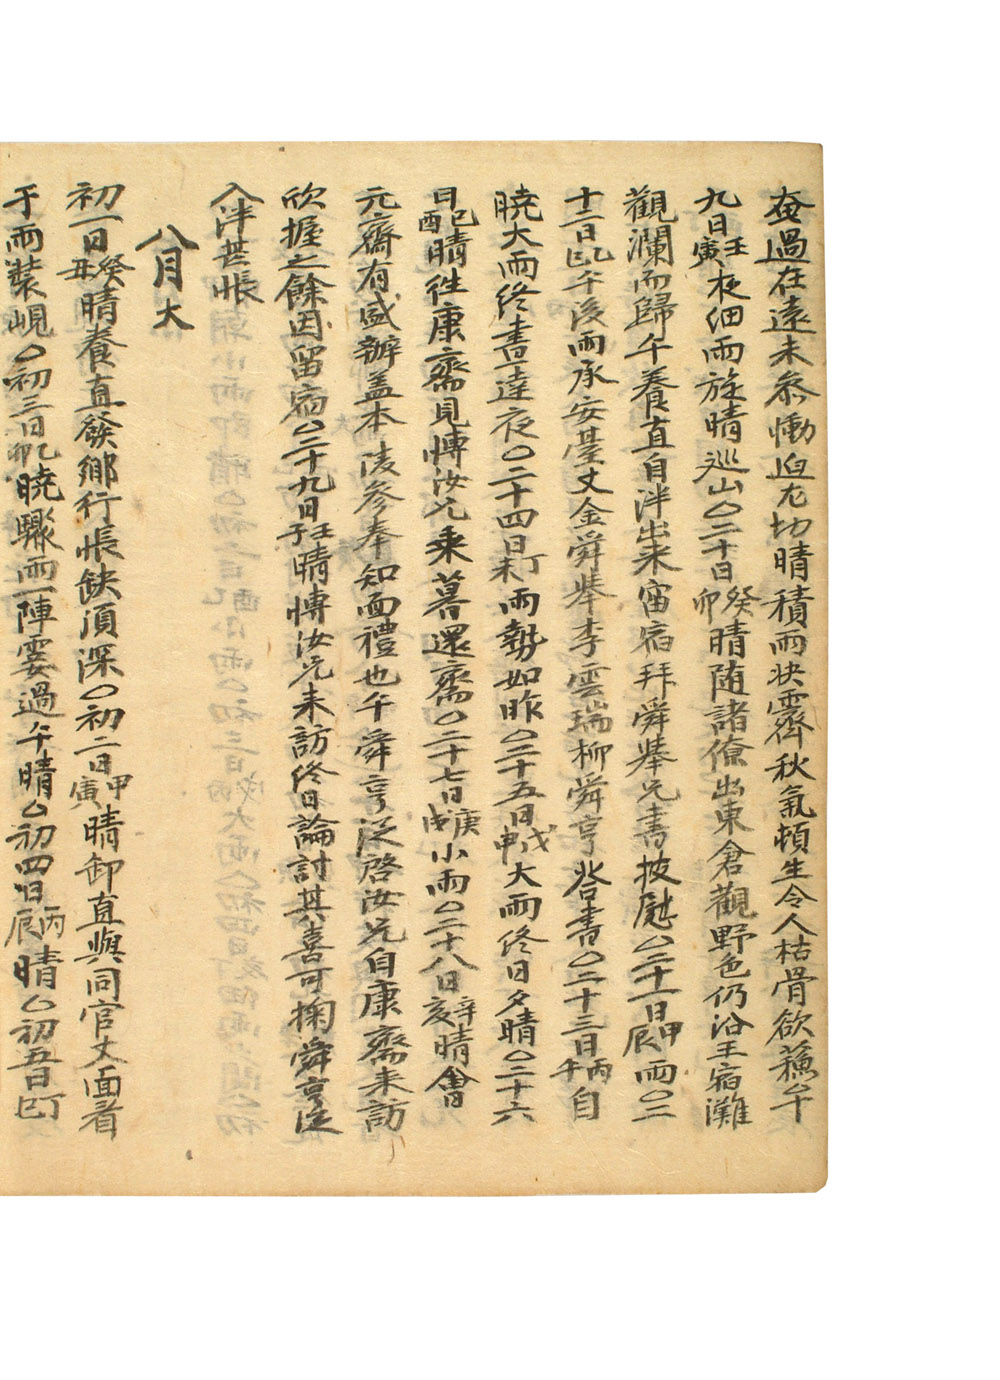 奄過在遠未參慟迫尤切晴積雨快霽秋氣頓生令人枯骨欲蘇〇十
九日壬寅夜細雨旋晴巡山〇二十日癸卯晴随諸僚出東倉觀野色仍沿王宿灘
觀瀾而歸午養直自泮出来留宿拜舜擧兄書披慰〇二十一日甲辰雨〇二
十二日乙巳午後雨承安臺丈金舜擧李雲瑞柳舜亨答書〇二十三日丙午自
曉大雨終晝達夜〇二十四日丁未雨勢如昨〇二十五日戊申大雨終日夕晴〇二十六
日己酉晴往康齋見愽汝兄乘暮還齋〇二十七日庚戌小雨〇二十八日辛亥晴會
元齋有盛辦盖本陵參奉知面禮也午舜亨泛啓汝兄自康齋来訪
欣握之餘因留宿〇二十九日壬子晴愽汝兄来訪終日論討其喜可掬舜亨泛
入泮甚悵
八月大
初一日癸丑晴養直發鄉行悵缺頂深〇初二日甲寅晴卸直與同官丈面看
于兩裝峴〇初三日乙卯曉驟雨一陣霎過午晴〇初四日丙辰晴〇初五日丁巳